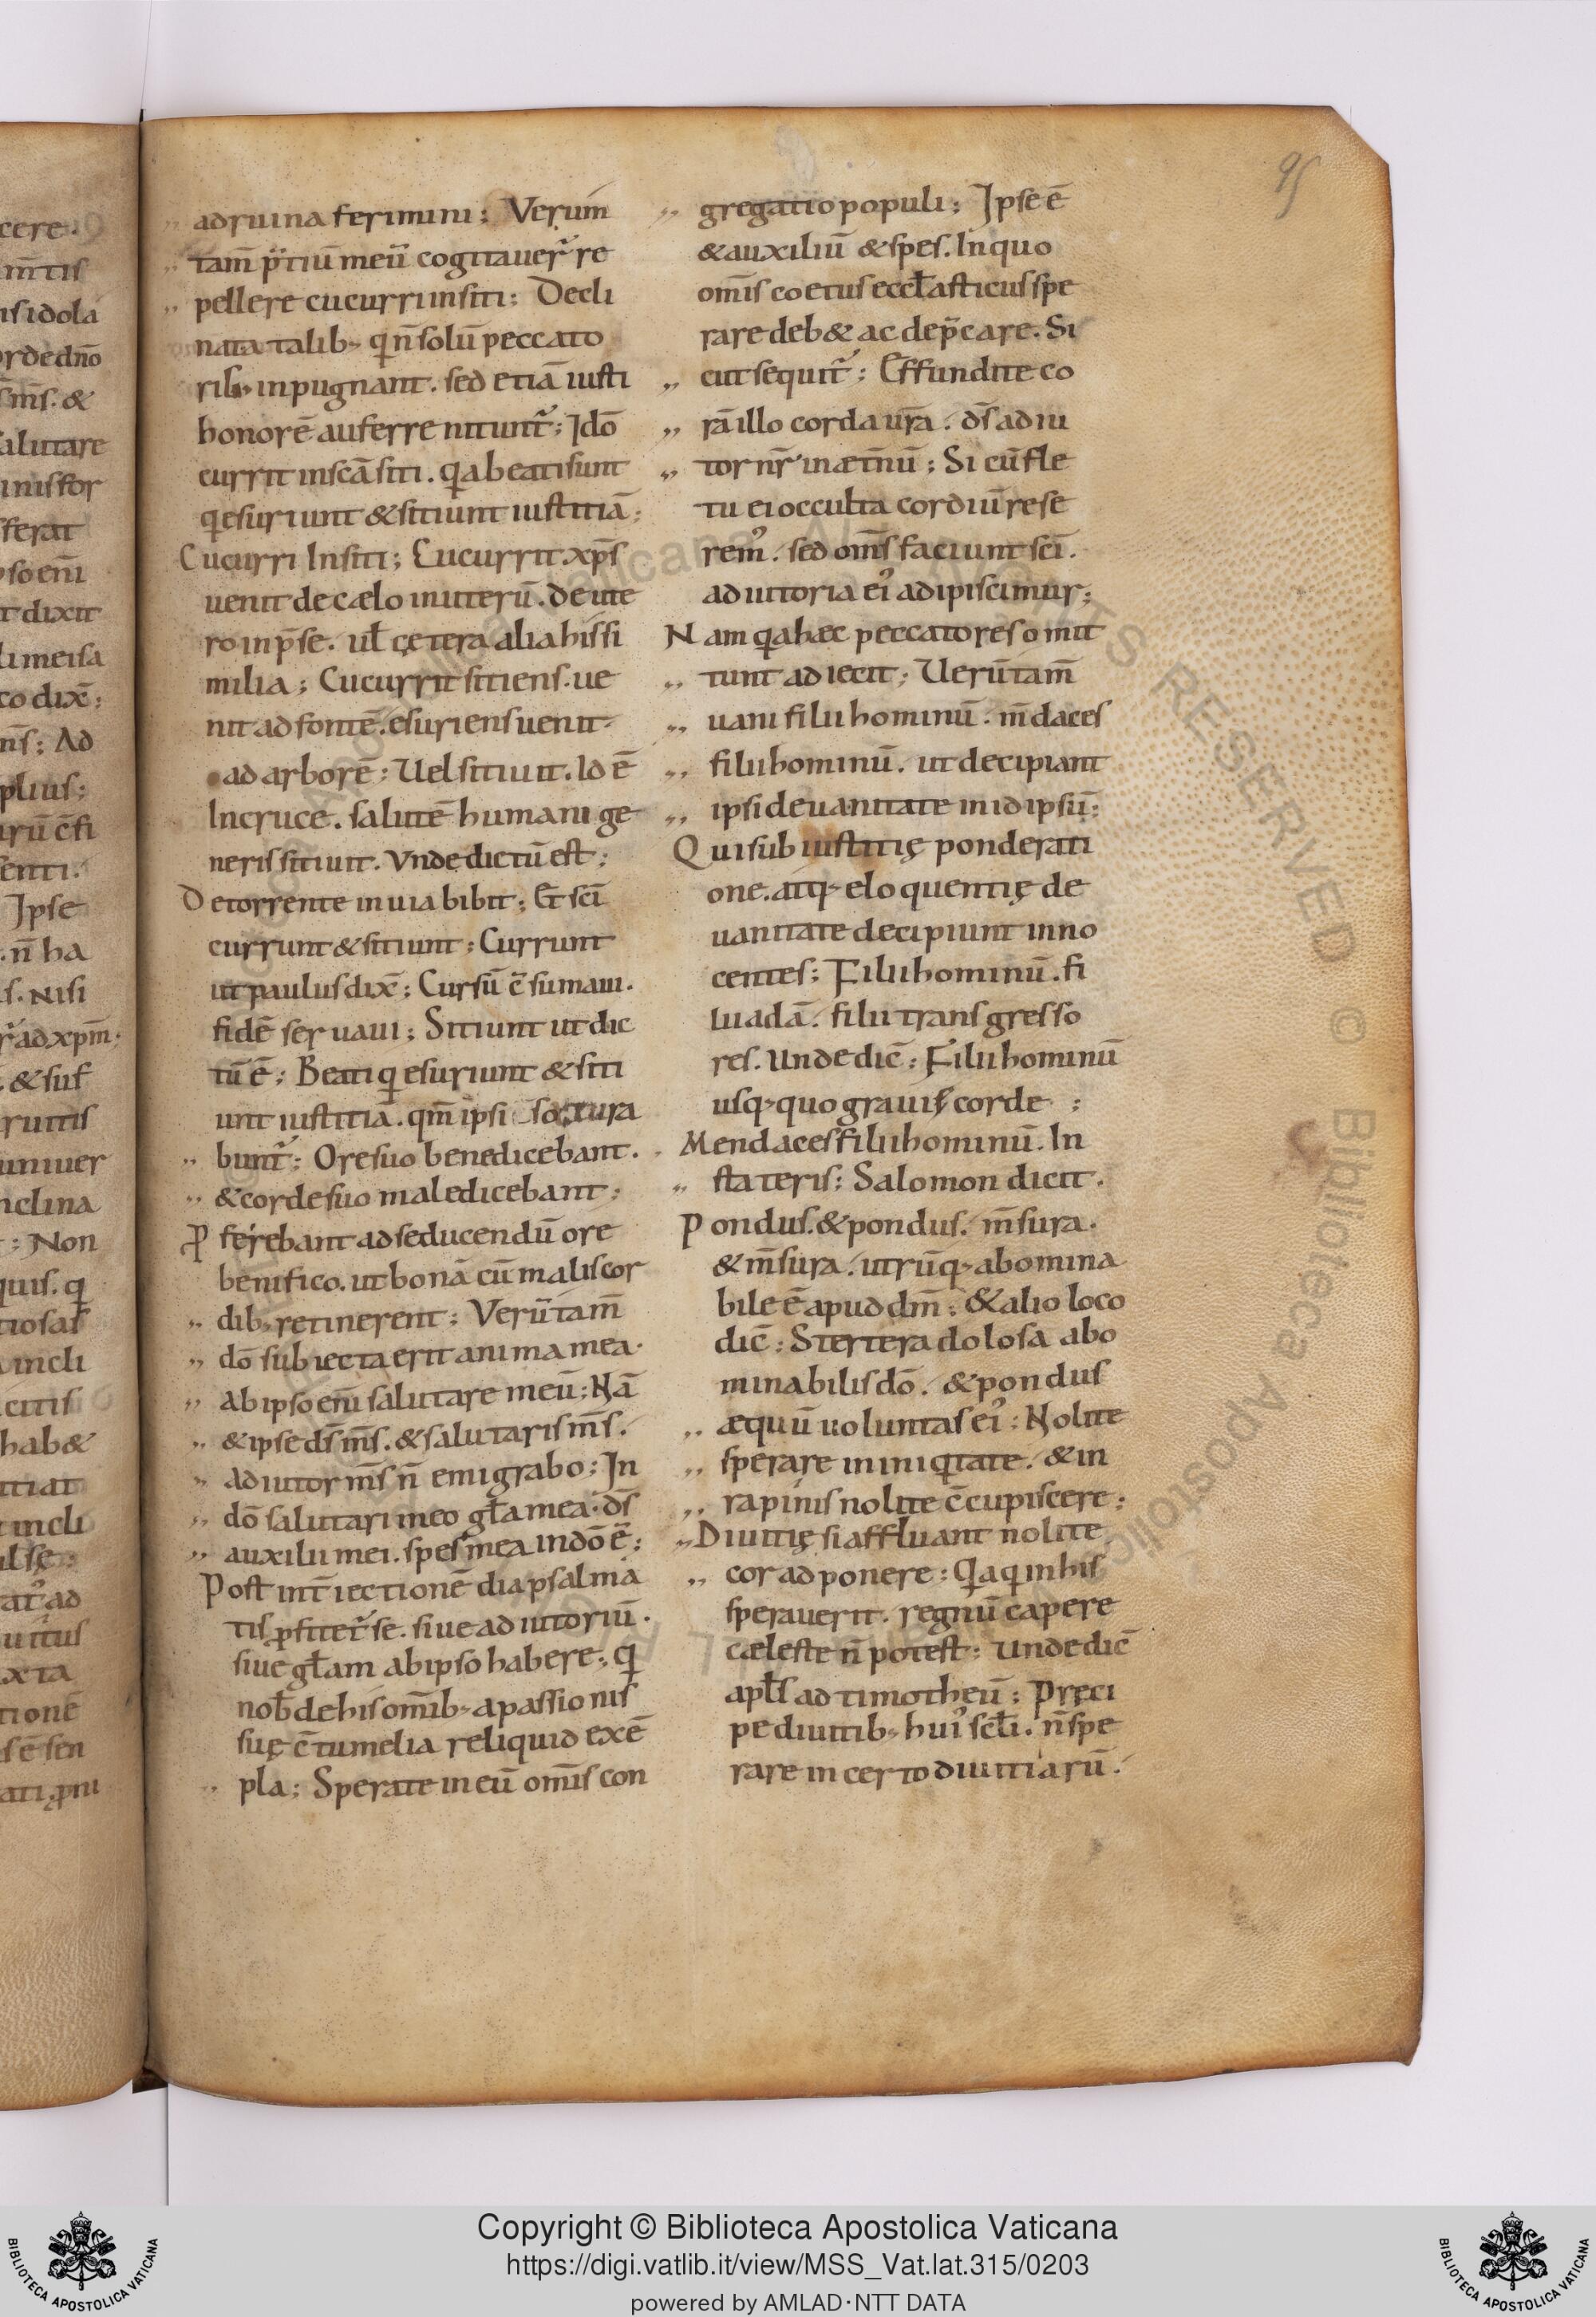 95
ad ruina ferimini; Verum
tam̄ p̄tiū meū cogitauer̄ re
pellere cucurri in siti; Decli
nata talib; qi n̄ solū peccato
rib; inpugnant. sed etiā iusti
honorē auferre nitunt᷑; Ido
currit in scā siti. qa beati sunt
qi esuriunt & sitiunt iustitiā;
Cucurri In siti; Cucurrit xp̄s
uenit de cælo in uterū. de ute
ro in p̄se. ul̄ cętera alia his si
milia; Cucurrit sitiens. ue
nit ad fontē. esuriens uenit
ad arborē; Vel sitiuit. Id ē
In cruce. salutē humani ge
neris sitiuit. Vnde dictū est;
De torrente in uia bibit; Et sc̄i
currunt & sitiunt; Currunt
ut paulus dix̄; Cursū c̄sumaui.
fidē seruaui; Sitiunt ut dic
tū ē; Beati qi esuriunt & siti
unt iustitiā. qm̄ ipsi saturа
bunt᷑; Ore suo benedicebant.
& corde suo maledicebant;
Pferebant ad seducendū ore
benifico. ut bonā cū malis cor
dib; retinerent; Verūtam̄
dō subiecta erit anima mea.
Ab ipso enī salutare meū; Nā
& ipse ds̄ m̄s. & salutaris m̄s.
adiutor m̄s n̄ emigrabo; In
dō salutari meo gl̄a mea. ds̄
auxilii mei. spes mea in dō ē;
Post int̄iectionē diapsalma
tis ꝓfiter᷑ se. siue adiutoriū.
siue gl̄am ab ipso habere; qi
nob̄ de his om̄ib; a passionis
suę c̄tumelia reliquid exē
pla; Sperate in eū om̄is con
gregatio populi; Ipse ē
& auxiliū & spes. In quo
om̄is coetus eccl̄asticus spe
rare deb& ac dep̄care. Si
cut sequit᷑; Effundite co
rā illo corda ur̄a. ds̄ adiu
tor nr̄ in æt̄nū; Si cū fle
tu ei occulta cordiū rese
rem᾽. sed om̄s faciunt sc̄i.
adiutoria ei᾽ adipiscimur;
Nam qa hæc peccatores omit
tunt adiecit; Verūtam̄
uani filii hominū. m̄daces
filii hominū. ut decipiant
ipsi de uanitate in id ipsū;
Qui sub iustitię ponderati
one. atq; eloquentię de
uanitate decipiunt inno
centes; Filii hominū. fi
lii adā. filii transgresso
res. Vnde dic̄; Filii hominū
usq; quo grauis corde;
Mendaces filii hominū. In
stateris; Salomon dicit.
Pondus. & pondus. m̄sura.
& m̄sura. utrūq; abomina
bile ē apud dm̄; & alio loco
dic̄; Stertera dolosa abo
minabilis dō. & pondus
æquū uoluntas ei᾽; Nolite
sperare in iniqitate. & in
rapinis nolite c̄cupiscere;
Diuitię si affluant nolite
cor adponere; Qa qi in his
sperauerit. regnū capere
cæleste n̄ potest; Vnde dic̄
apl̄s ad timotheū; Pręci
pe diuitib; hui᾽ scl̄i. n̄ spe
rare in certo diuitiarū.
Copyright © Biblioteca Apostolica Vaticana
https://digi.vatlib.it/view/MSS_Vat.lat.315/0203
powered by AMLAD·NTT DATA